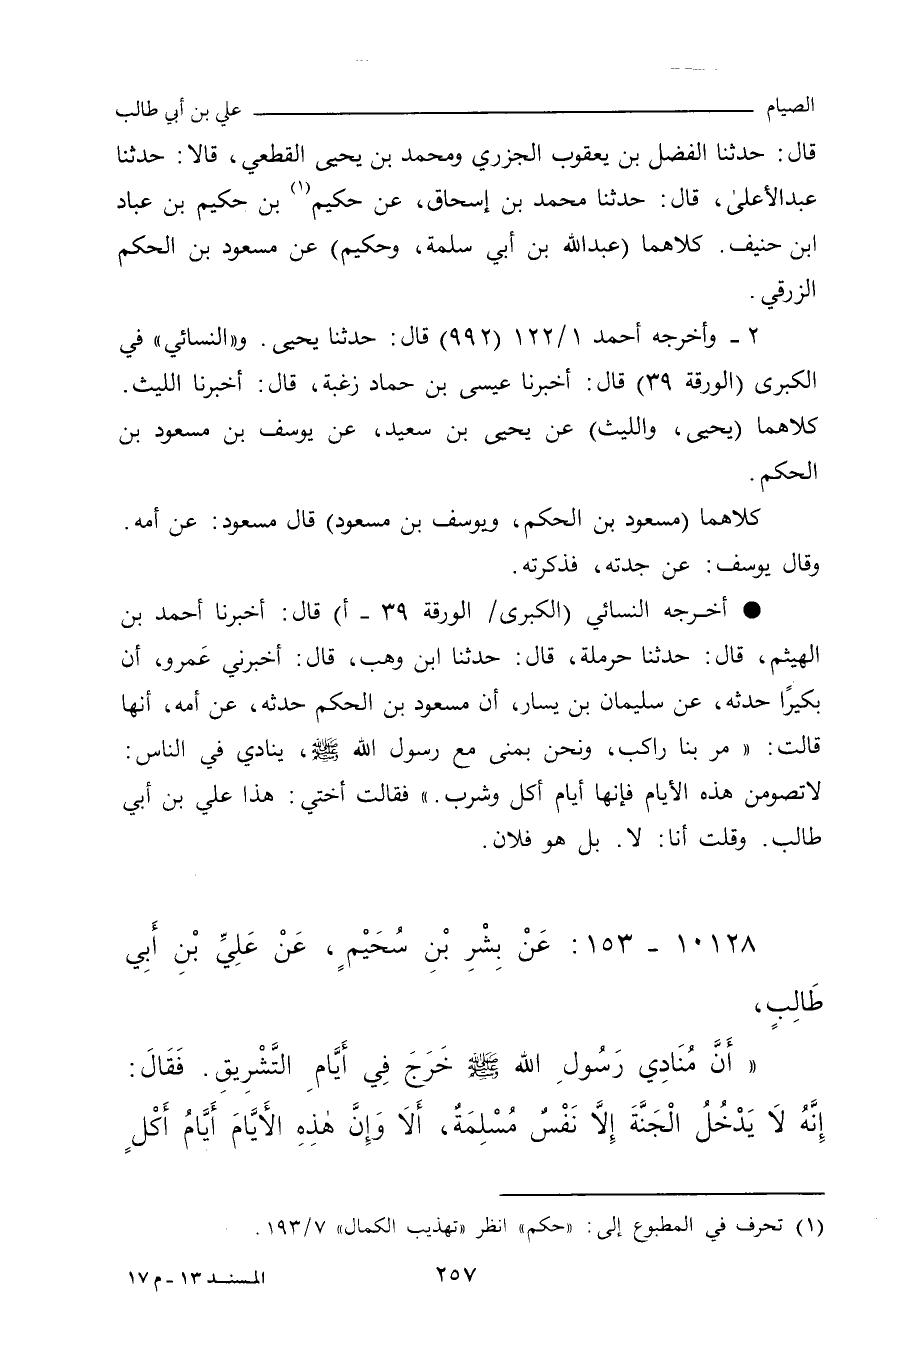 الصيام ــــــــــ علي بن أبي طالب
قال: حدثنا الفضل بن يعقوب الجزري ومحمد بن يحيى القطعي، قالا: حدثنا
عبدالأعلىٰ، قال: حدثنا محمد بن إسحاق، عن حكيم(١) بن حكيم بن عباد
ابن حنيف. كلاهما (عبدالله بن أبي سلمة، وحكيم) عن مسعود بن الحكم
الزرقي.
٢ ـ وأخرجه أحمد ١/١٢٢ (٩٩٢) قال: حدثنا يحيى. و«النسائي» في
الكبرى (الورقة ٣٩) قال: أخبرنا عيسى بن حماد زغبة، قال: أخبرنا الليث.
كلاهما (يحيى، والليث) عن يحيى بن سعيد، عن يوسف بن مسعود بن
الحكم.
كلاهما (مسعود بن الحكم، ويوسف بن مسعود) قال مسعود: عن أمه.
وقال يوسف: عن جدته، فذكرته.
● أخرجه النسائي (الكبرى/ الورقة ٣٩ ـ أ) قال: أخبرنا أحمد بن
الهيثم، قال: حدثنا حرملة، قال: حدثنا ابن وهب، قال: أخبرني عَمرو، أن
بكيرًا حدثه، عن سليمان بن يسار، أن مسعود بن الحكم حدثه، عن أمه، أنها
قالت: « مر بنا راكب، ونحن بمنى مع رسول الله ﷺ، ينادي في الناس:
لاتصومن هذه الأيام فإنها أيام أكل وشرب.» فقالت أختي: هذا علي بن أبي
طالب. وقلت أنا: لا. بل هو فلان.
١٠١٢٨ ـ ١٥٣: عَنْ بِشْرِ بْنِ سُحَيْمٍ، عَنْ عَلِيِّ بْنِ أَبِي
طَالِبٍ،
« أَنَّ مُنَادِي رَسُولِ الله ﷺ خَرَجَ فِي أَيَّامِ التَّشْرِيقِ. فَقَالَ:
إِنَّهُ لَا يَدْخُلُ الْجَنَّةَ إِلَّا نَفْسٌ مُسْلِمَةٌ، أَلَا وَإِنَّ هٰذِهِ الأَيَّامَ أَيَّامُ أَكْلٍ
(١) تحرف في المطبوع إلى: «حكم» انظر «تهذيب الكمال» ٧/١٩٣.
٢٥٧
المسند ١٣ ـ م ١٧